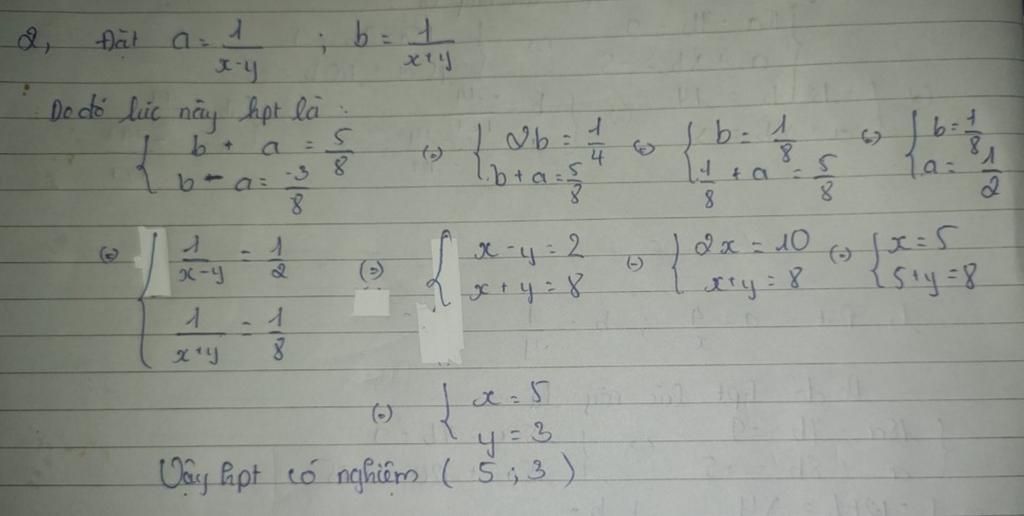 2, Đặt a = 1/(x-y) ; b = 1/(x+y)
Do đó lúc này hpt là :
{ b + a = 5/8 ; b - a = -3/8 (=) { 2b = 1/4 ; b + a = 5/8 (=) { b = 1/8 ; 1/8 + a = 5/8 (=) { b = 1/8 ; a = 1/2
(=) { 1/(x-y) = 1/2 ; 1/(x+y) = 1/8 (=) { x - y = 2 ; x + y = 8 (=) { 2x = 10 ; x + y = 8 (=) { x = 5 ; 5 + y = 8
(=) { x = 5 ; y = 3
Vậy hpt có nghiệm ( 5 ; 3 )